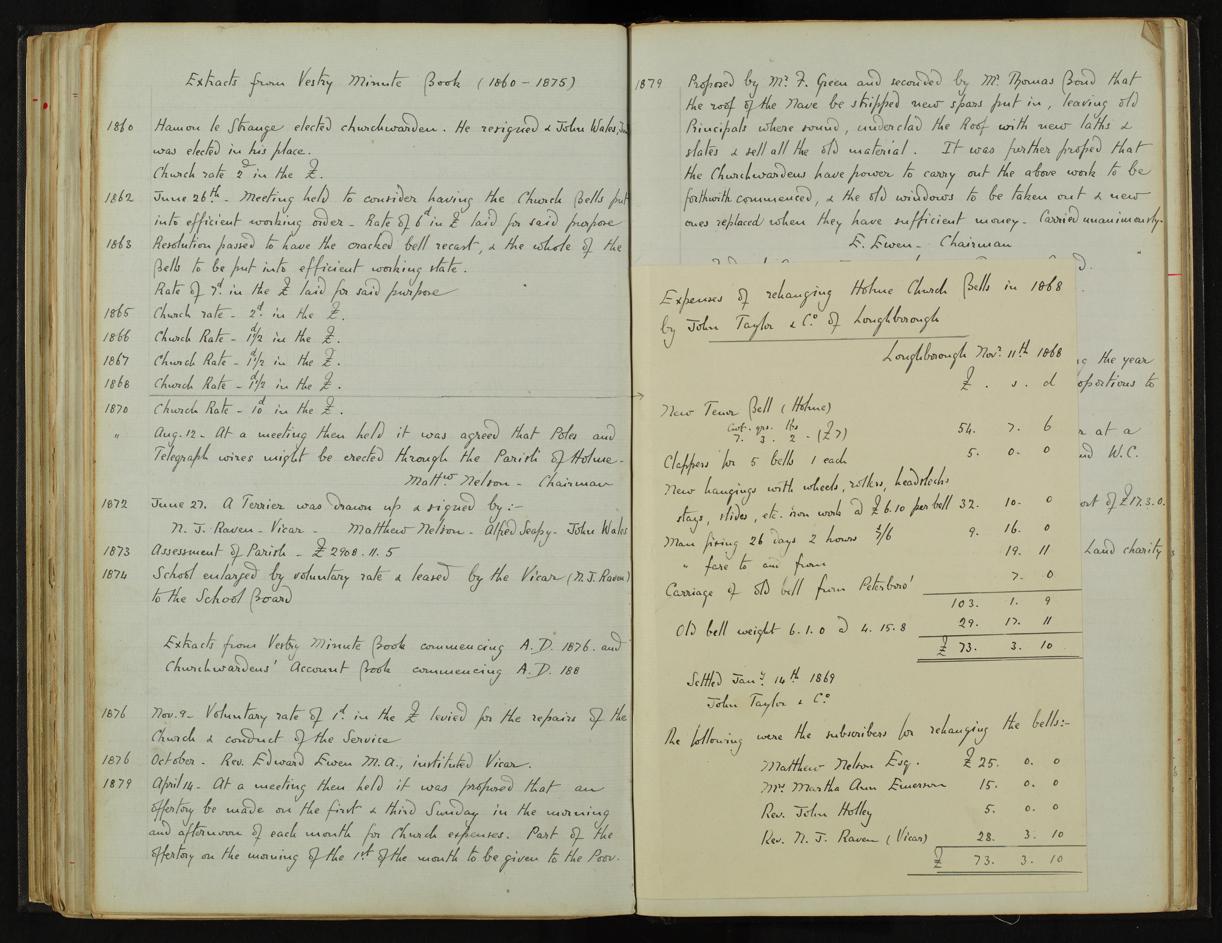 Extracts from Vestry Minute Book (1860 – 1875)
1860 Hamon le Strange elected churchwarden. He resigned & John Wales, Jun
was elected in his place.
Church rate 2d in the £.
1862 June 26th – Meeting held to consider having the Church Bells put
into efficient working order – Rate of 6d in £ laid for said purpose
1863 Resolution passed to have the cracked bell recast, & the whole of the
Bells to be put into efficient working state.
Rate of 7d. in the £ laid for said purpose
1865 Church rate – 2d. in the £.
1866 Church Rate – 1d/2 in the £.
1867 Church Rate – 1d/2 in the £.
1868 Church Rate – 1d/2 in the £.
1870 Church Rate – 10d in the £.
" Aug. 12 – At a meeting then held it was agreed that Poles and
Telegraph wires might be erected through the Parish of Holme –
Mattw Nelson – Chairman
1872 June 27. A Terrier was drawn up & signed by :–
N. J. Raven – Vicar – Matthew Nelson – Alfred Seapy – John Wales
1873 Assessment of Parish – £2908. 11. 5
1874 School enlarged by voluntary rate & leased by the Vicar (N. J. Raven)
to the School Board
Extracts from Vestry Minute Book commencing A.D. 1876. and
Churchwardens' Account Book commencing A.D. 188
1876 Nov. 9 – Voluntary rate of 1d. in the £ levied for the repairs of the
Church & conduct of the Service
1876 October – Rev. Edward Ewen M.A., instituted Vicar.
1879 April 14 – At a meeting then held it was proposed that an
offertory be made on the first & third Sunday in the morning
and afternoon of each month for Church expenses. Part of the
offertory on the morning of the 1st of the month to be given to the Poor.
1879 Proposed by Mr. F. Green and seconded by Mr. Thomas Bond that
the roof of the Nave be stripped new spars put in, leaving old
Principals where sound, underclad the Roof with new laths &
slates & sell all the old material. It was further proposed that
the Churchwardens have power to carry out the above work to be
forthwith commenced, & the old windows to be taken out & new
ones replaced when they have sufficient money – Carried unanimously.
E. Ewen – Chairman
Expenses of rehanging Holme Church Bells in 1868
by John Taylor & Co. of Loughborough
Loughborough Novr. 11th 1868
£ . s . d
New Tenor Bell (Holme)
Cwt. qrs. lbs
7. 3. 2 – (£7) 54. 7. 6
Clappers for 5 bells 1 each 5. 0. 0
New hangings with wheels, rollers, headstocks
stays, slides, etc. iron work @ £6.10 per bell 32. 10. 0
Man fixing 26 days 2 hours 7/6 9. 16. 0
" fare to and from 19. 11
Carriage of old bell from Peterboro' 7. 0
103. 1. 9
Old bell weight 6. 1. 0 @ 4. 15. 8 29. 17. 11
£ 73. 3. 10
Settled Jany. 14th 1869
John Taylor & Co
The following were the subscribers for rehanging the bells:–
Matthew Nelson Esq. £ 25. 0. 0
Mrs Martha Ann Emerson 15. 0. 0
Rev. John Holley 5. 0. 0
Rev. N. J. Raven (Vicar) 28. 3. 10
£ 73. 3. 10
the year
oportions to
at a
nd W.C.
ort of £17. 3. 0.
Land charity